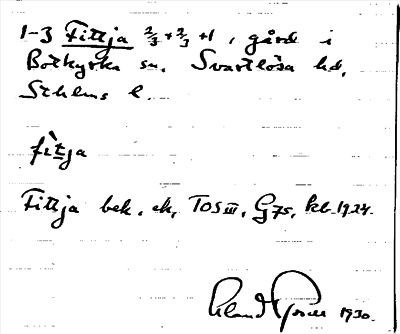 1-3 Fittja 2/3 + 2/3 + 1, gård i
Botkyrka sn. Svartlösa hd,
Sthlms l.
fìtja
Fittja bek. ek, TOS III, G75, kb. 1924.
1930.